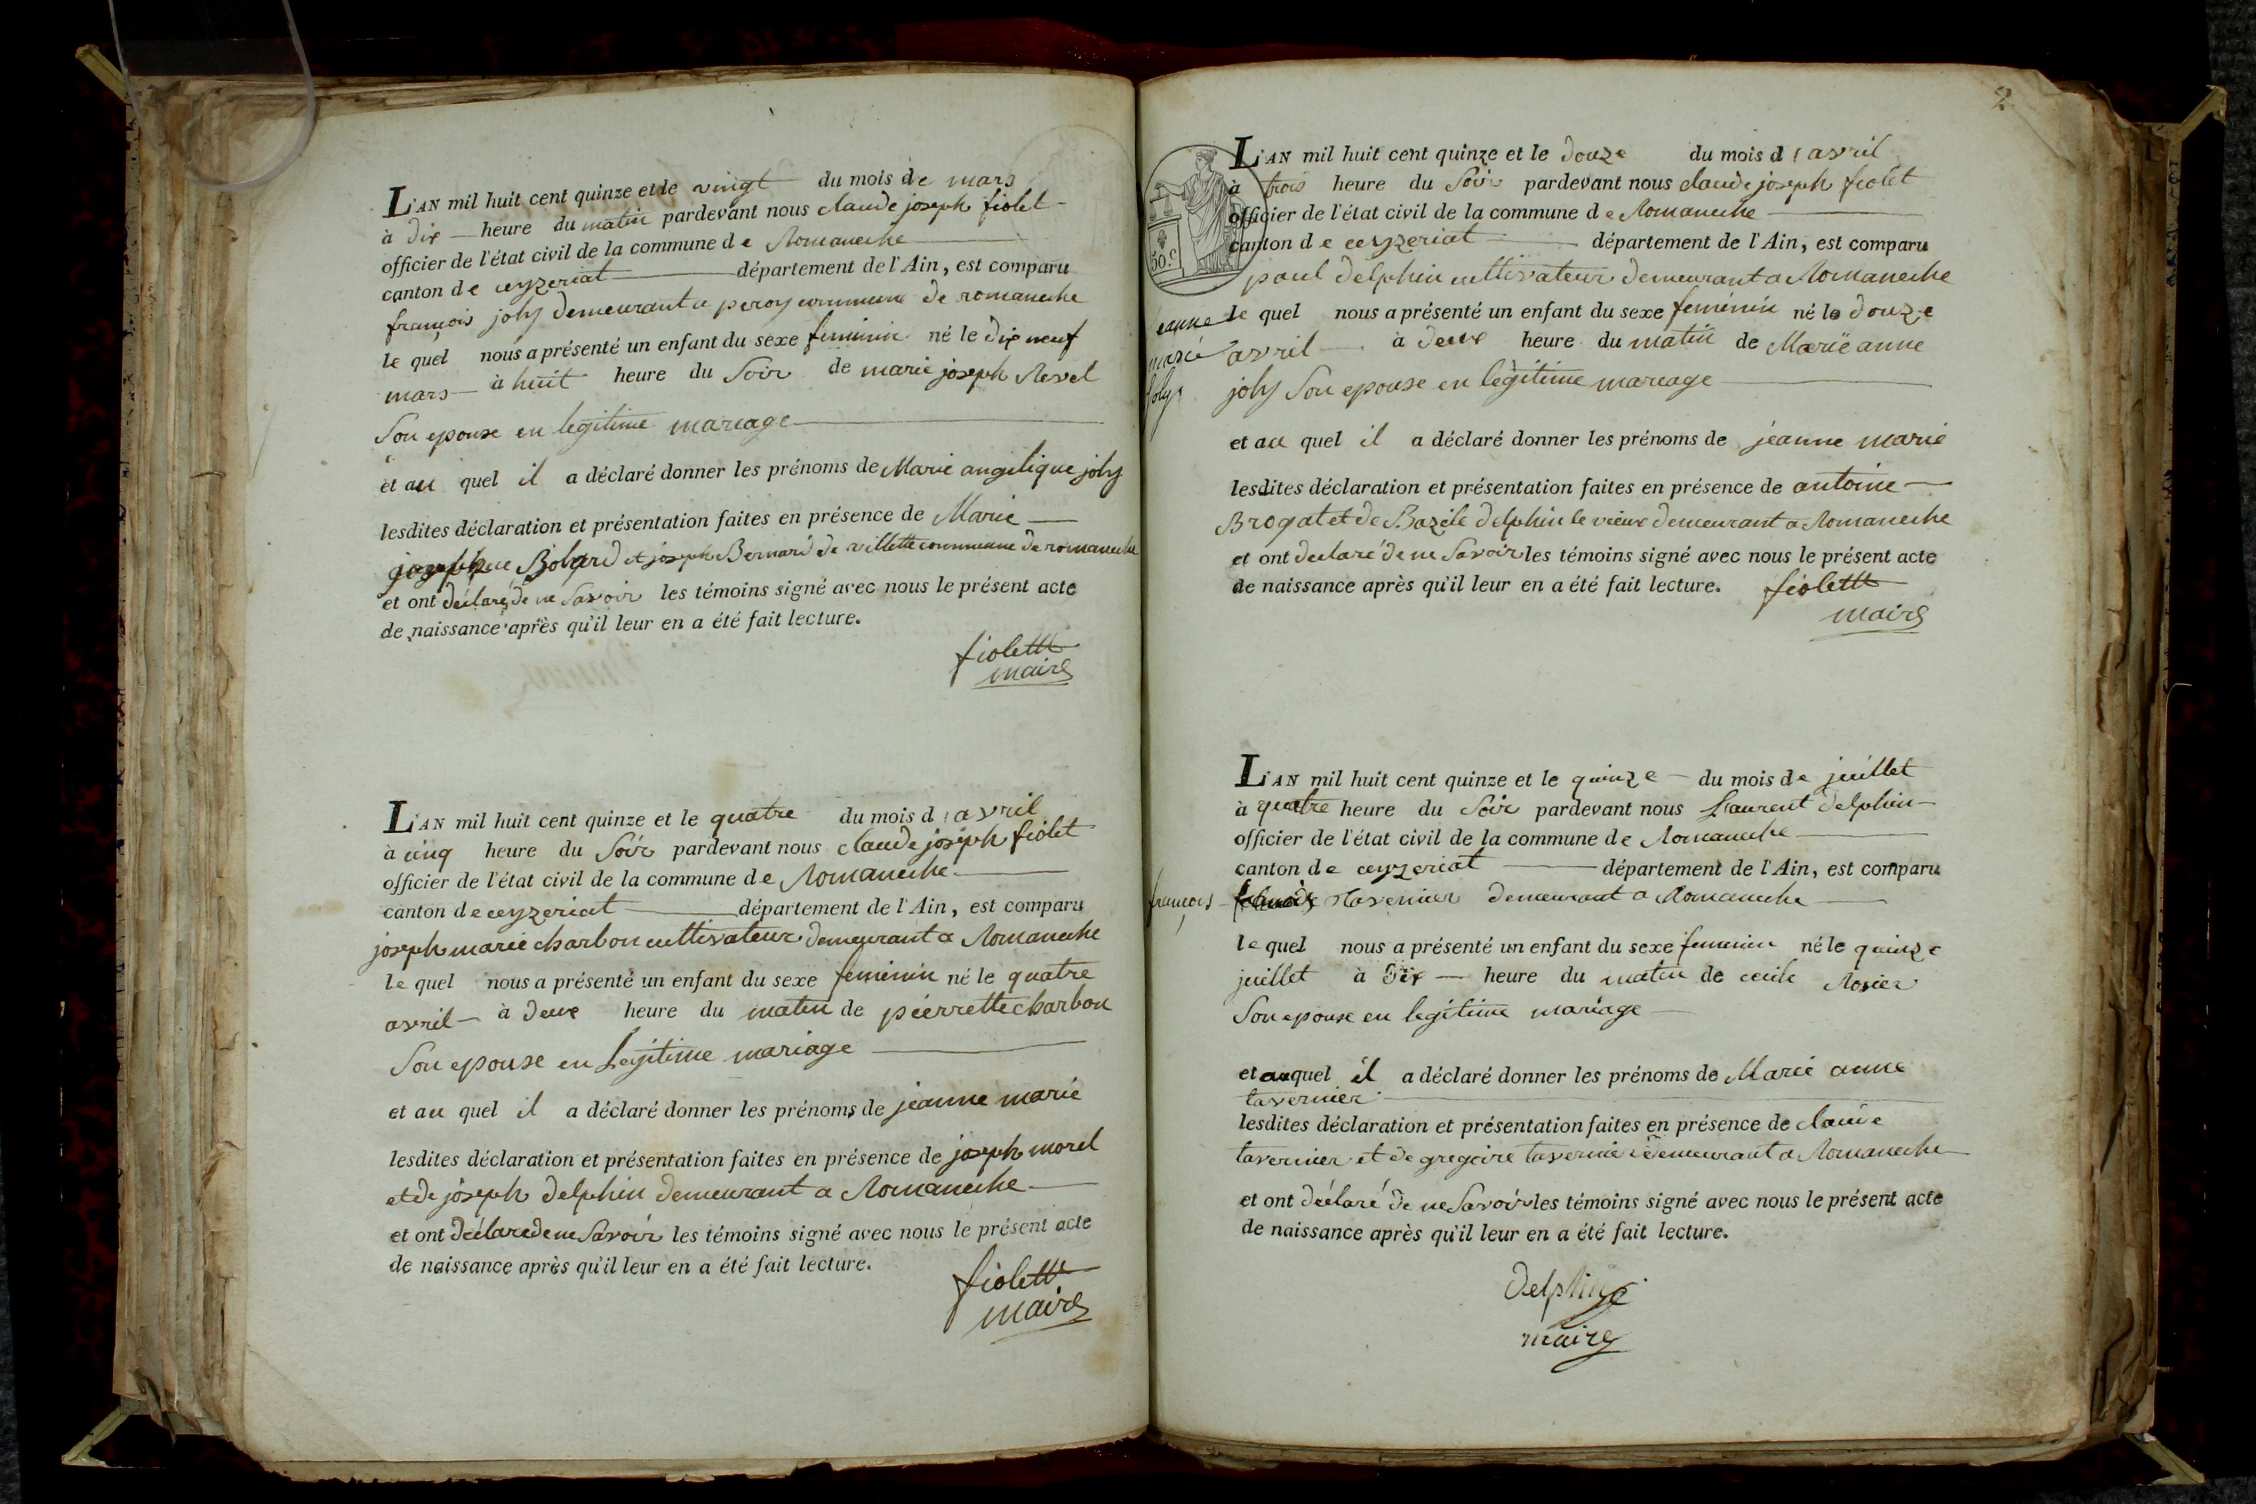 L'AN mil huit cent quinze et le vingt du mois de mars
à dix heure du matin pardevant nous claude joseph fiolet
officier de l'état civil de la commune de Romaneche
canton de ceyzeriat département de l'Ain, est comparu
françois joly demeurant a peroy commune de romaneche
le quel nous a présenté un enfant du sexe feminin né le dix neuf
mars à huit heure du soir de marie joseph Revel
son epouse en legitime mareage
et au quel il a déclaré donner les prénoms de Marie angelique joly
lesdites déclaration et présentation faites en présence de Marie
Bobard et joseph Bernard de villette commune de romaneche
et ont déclaré de ne savoir les témoins signé avec nous le présent acte
de naissance après qu'il leur en a été fait lecture.
fiolett
maire
L'AN mil huit cent quinze et le quatre du mois d'avril
à cinq heure du soir pardevant nous claude joseph fiolet
officier de l'état civil de la commune de Romaneche
canton de ceyzeriat département de l'Ain, est comparu
joseph marie charbon cultivateur demeurant a Romaneche
le quel nous a présenté un enfant du sexe feminin né le quatre
avril à deux heure du matin de pierrette charbon
son epouse en Legitime mariage
et au quel il a déclaré donner les prénoms de jeanne marie
lesdites déclaration et présentation faites en présence de joseph morel
et de joseph delphin demeurant a Romaneche
et ont déclaré de ne savoir les témoins signé avec nous le présent acte
de naissance après qu'il leur en a été fait lecture.
fiolett
maire
2
L'AN mil huit cent quinze et le douze du mois d'avril
à trois heure du soir pardevant nous claude joseph fiolet
officier de l'état civil de la commune de Romaneche
canton de ceyzeriat département de l'Ain, est comparu
50.c
paul delphin cultivateur demeurant a Romaneche
le quel nous a présenté un enfant du sexe feminin né le douze
avril à deux heure du matin de Marie anne
joly son epouse en legitime mareage
jeanne
marie
joly
et au quel il a déclaré donner les prénoms de jeanne marie
lesdites déclaration et présentation faites en présence de antoine
Brogat et de Bazile delphin le vieux demeurant a Romaneche
et ont déclaré de ne savoir les témoins signé avec nous le présent acte
de naissance après qu'il leur en a été fait lecture. fiolett
maire
L'AN mil huit cent quinze et le quinze du mois de juillet
à quatre heure du soir pardevant nous Laurent delphin
officier de l'état civil de la commune de Romaneche
canton de ceyzeriat département de l'Ain, est comparu
françois tavernier demeurant a Romaneche
le quel nous a présenté un enfant du sexe feminin né le quinze
juillet à dix heure du matin de cecile Rosier
son epouse en legitime mariage
et auquel il a déclaré donner les prénoms de Marie anne
tavernier
lesdites déclaration et présentation faites en présence de claude
tavernier et de gregoire tavernier demeurant a Romaneche
et ont déclaré de ne savoir les témoins signé avec nous le présent acte
de naissance après qu'il leur en a été fait lecture.
Delphin
maire